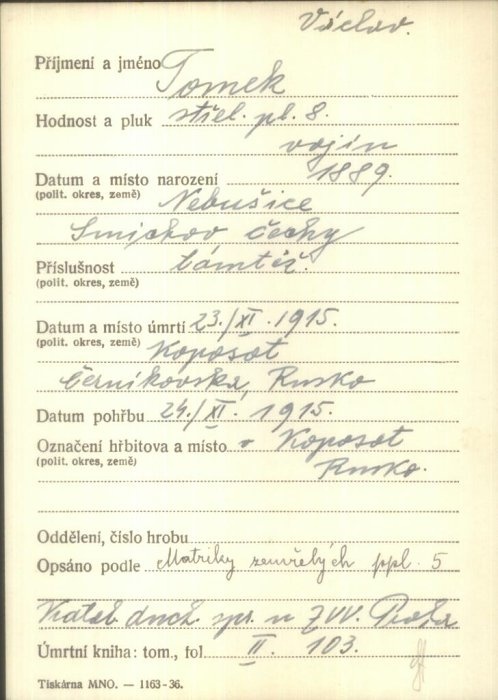 Václav.
Příjmení a jméno Tomek
Hodnost a pluk střel. pl. 8.
vojín
Datum a místo narození 1889.
(polit. okres, země) Nebušice
Smichov Čechy
Příslušnost tamtéž.
(polit. okres, země)
Datum a místo úmrtí 23./XI. 1915.
(polit. okres, země) Koposot
Černikovska, Rusko
Datum pohřbu 24./XI. 1915.
Označení hřbitova a místo v Koposot
(polit. okres, země) Rusko.
Oddělení, číslo hrobu
Opsáno podle Matriky zemřelých ppl. 5
duch. spr. u ZVV. Praha
Úmrtní kniha: tom., fol. II. 103.
Tiskárna MNO. — 1163-36.